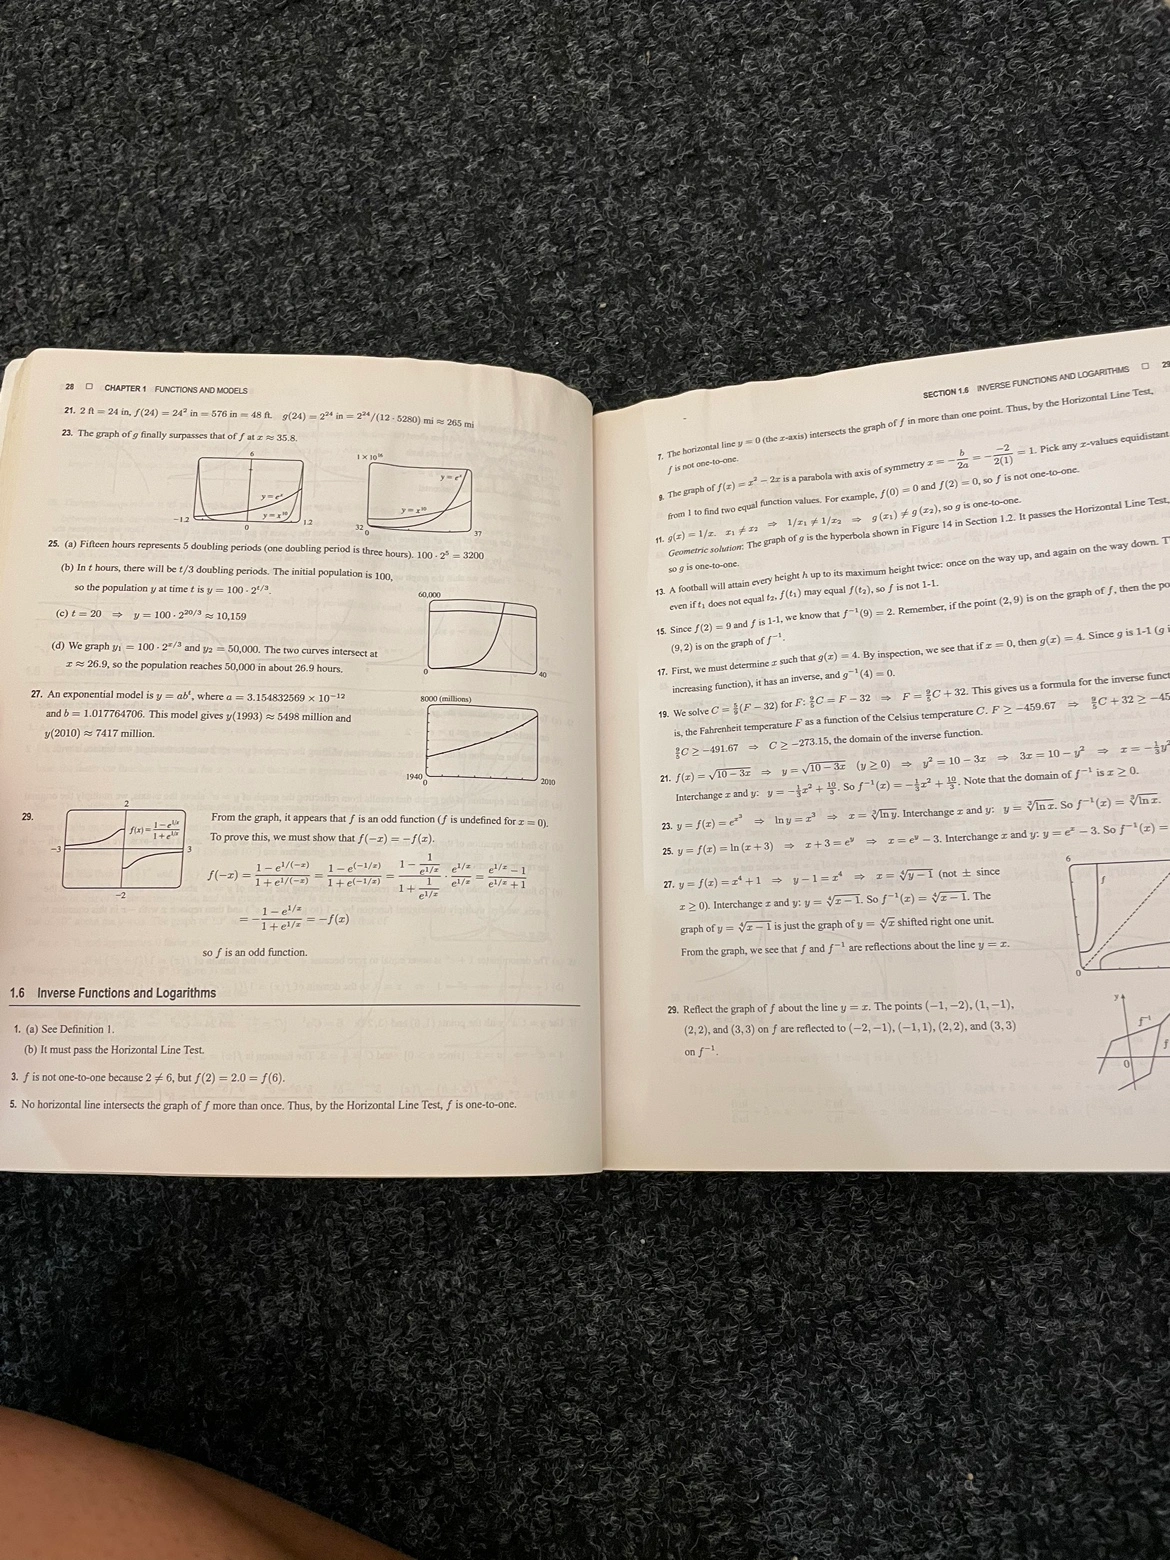 28 □ CHAPTER 1 FUNCTIONS AND MODELS
21. 2 ft = 24 in, f(24) = 24² in = 576 in = 48 ft. g(24) = 2²⁴ in = 2²⁴/(12 · 5280) mi ≈ 265 mi
23. The graph of g finally surpasses that of f at x ≈ 35.8.
6
y = eˣ
y = x¹⁰
−1.2
0
1.2
1 × 10¹⁶
y = eˣ
y = x¹⁰
32
0
37
25. (a) Fifteen hours represents 5 doubling periods (one doubling period is three hours). 100 · 2⁵ = 3200
(b) In t hours, there will be t/3 doubling periods. The initial population is 100,
so the population y at time t is y = 100 · 2^(t/3).
(c) t = 20 ⇒ y = 100 · 2^(20/3) ≈ 10,159
60,000
0
40
(d) We graph y₁ = 100 · 2^(x/3) and y₂ = 50,000. The two curves intersect at
x ≈ 26.9, so the population reaches 50,000 in about 26.9 hours.
27. An exponential model is y = abᵗ, where a = 3.154832569 × 10⁻¹²
and b = 1.017764706. This model gives y(1993) ≈ 5498 million and
y(2010) ≈ 7417 million.
8000 (millions)
1940
0
2010
29.
2
f(x) = (1 − e^(1/x))/(1 + e^(1/x))
−3
3
−2
From the graph, it appears that f is an odd function (f is undefined for x = 0).
To prove this, we must show that f(−x) = −f(x).
f(−x) = (1 − e^(1/(−x)))/(1 + e^(1/(−x))) = (1 − e^(−1/x))/(1 + e^(−1/x)) = (1 − 1/e^(1/x))/(1 + 1/e^(1/x)) · e^(1/x)/e^(1/x) = (e^(1/x) − 1)/(e^(1/x) + 1)
= −(1 − e^(1/x))/(1 + e^(1/x)) = −f(x)
so f is an odd function.
1.6 Inverse Functions and Logarithms
1. (a) See Definition 1.
(b) It must pass the Horizontal Line Test.
3. f is not one-to-one because 2 ≠ 6, but f(2) = 2.0 = f(6).
5. No horizontal line intersects the graph of f more than once. Thus, by the Horizontal Line Test, f is one-to-one.
SECTION 1.6 INVERSE FUNCTIONS AND LOGARITHMS □ 29
7. The horizontal line y = 0 (the x-axis) intersects the graph of f in more than one point. Thus, by the Horizontal Line Test,
f is not one-to-one.
9. The graph of f(x) = x² − 2x is a parabola with axis of symmetry x = −b/2a = −(−2)/2(1) = 1. Pick any x-values equidistant
from 1 to find two equal function values. For example, f(0) = 0 and f(2) = 0, so f is not one-to-one.
11. g(x) = 1/x. x₁ ≠ x₂ ⇒ 1/x₁ ≠ 1/x₂ ⇒ g(x₁) ≠ g(x₂), so g is one-to-one.
Geometric solution: The graph of g is the hyperbola shown in Figure 14 in Section 1.2. It passes the Horizontal Line Test,
so g is one-to-one.
13. A football will attain every height h up to its maximum height twice: once on the way up, and again on the way down.
even if t₁ does not equal t₂, f(t₁) may equal f(t₂), so f is not 1-1.
15. Since f(2) = 9 and f is 1-1, we know that f⁻¹(9) = 2. Remember, if the point (2, 9) is on the graph of f, then the
(9, 2) is on the graph of f⁻¹.
17. First, we must determine x such that g(x) = 4. By inspection, we see that if x = 0, then g(x) = 4. Since g is 1-1 (g
increasing function), it has an inverse, and g⁻¹(4) = 0.
19. We solve C = 5/9(F − 32) for F: 9/5C = F − 32 ⇒ F = 9/5C + 32. This gives us a formula for the inverse
is, the Fahrenheit temperature F as a function of the Celsius temperature C. F ≥ −459.67 ⇒ 9/5C + 32 ≥
9/5C ≥ −491.67 ⇒ C ≥ −273.15, the domain of the inverse function.
21. f(x) = √(10 − 3x) ⇒ y = √(10 − 3x) (y ≥ 0) ⇒ y² = 10 − 3x ⇒ 3x = 10 − y² ⇒ x = −1/3y²
Interchange x and y: y = −1/3x² + 10/3. So f⁻¹(x) = −1/3x² + 10/3. Note that the domain of f⁻¹ is x ≥ 0.
23. y = f(x) = e^(x³) ⇒ ln y = x³ ⇒ x = ∛(ln y). Interchange x and y: y = ∛(ln x). So f⁻¹(x) = ∛(ln x).
25. y = f(x) = ln(x + 3) ⇒ x + 3 = eʸ ⇒ x = eʸ − 3. Interchange x and y: y = eˣ − 3. So f⁻¹(x) =
27. y = f(x) = x⁴ + 1 ⇒ y − 1 = x⁴ ⇒ x = ∜(y − 1) (not ± since
x ≥ 0). Interchange x and y: y = ∜(x − 1). So f⁻¹(x) = ∜(x − 1). The
graph of y = ∜(x − 1) is just the graph of y = ∜x shifted right one unit.
From the graph, we see that f and f⁻¹ are reflections about the line y = x.
6
f
0
29. Reflect the graph of f about the line y = x. The points (−1, −2), (1, −1),
(2, 2), and (3, 3) on f are reflected to (−2, −1), (−1, 1), (2, 2), and (3, 3)
on f⁻¹.
y
f⁻¹
f
0